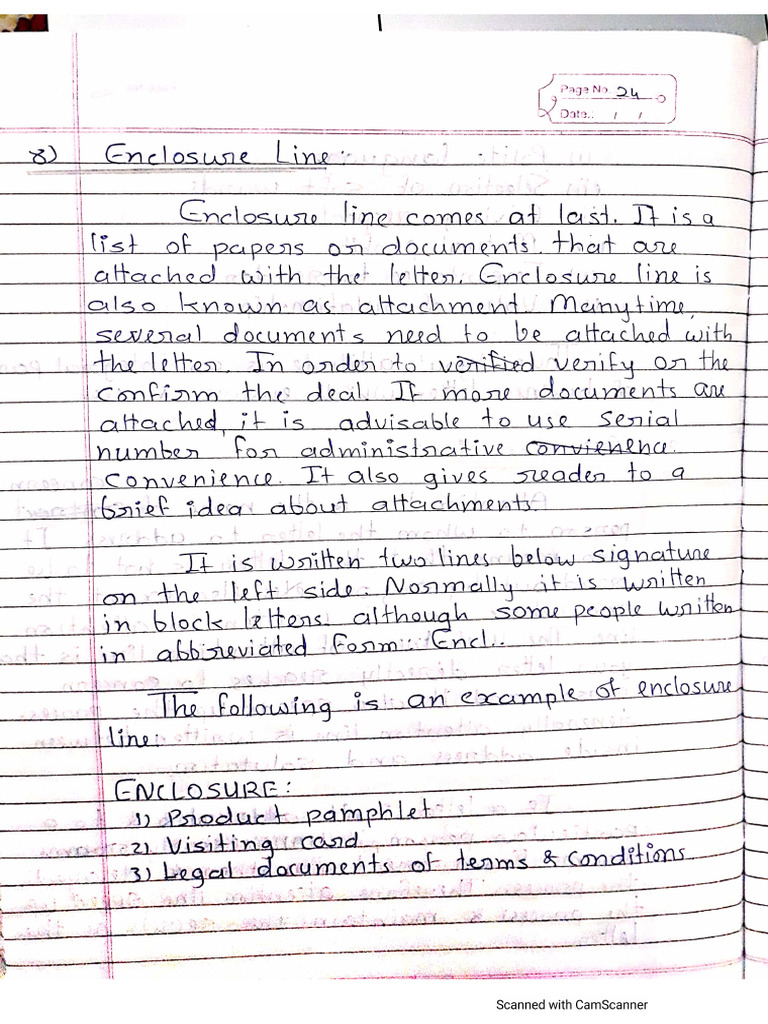 Page No. 24
Date.: / /
8) Enclosure Line:
Enclosure line comes at last. It is a
list of papers or documents that are
attached with the letter. Enclosure line is
also known as attachment. Manytime,
several documents need to be attached with
the letter. In order to verified verify or the
confirm the deal. If more documents are
attached, it is advisable to use serial
number for administrative convienence.
convenience. It also gives reader to a
brief idea about attachments.
It is written two lines below signature
on the left side. Normally it is written
in block letters. although some people written
in abbreviated form: Encl..
The following is an example of enclosure
line:
ENCLOSURE:
1) Product pamphlet
2) Visiting card
3) Legal documents of terms & conditions.
Scanned with CamScanner